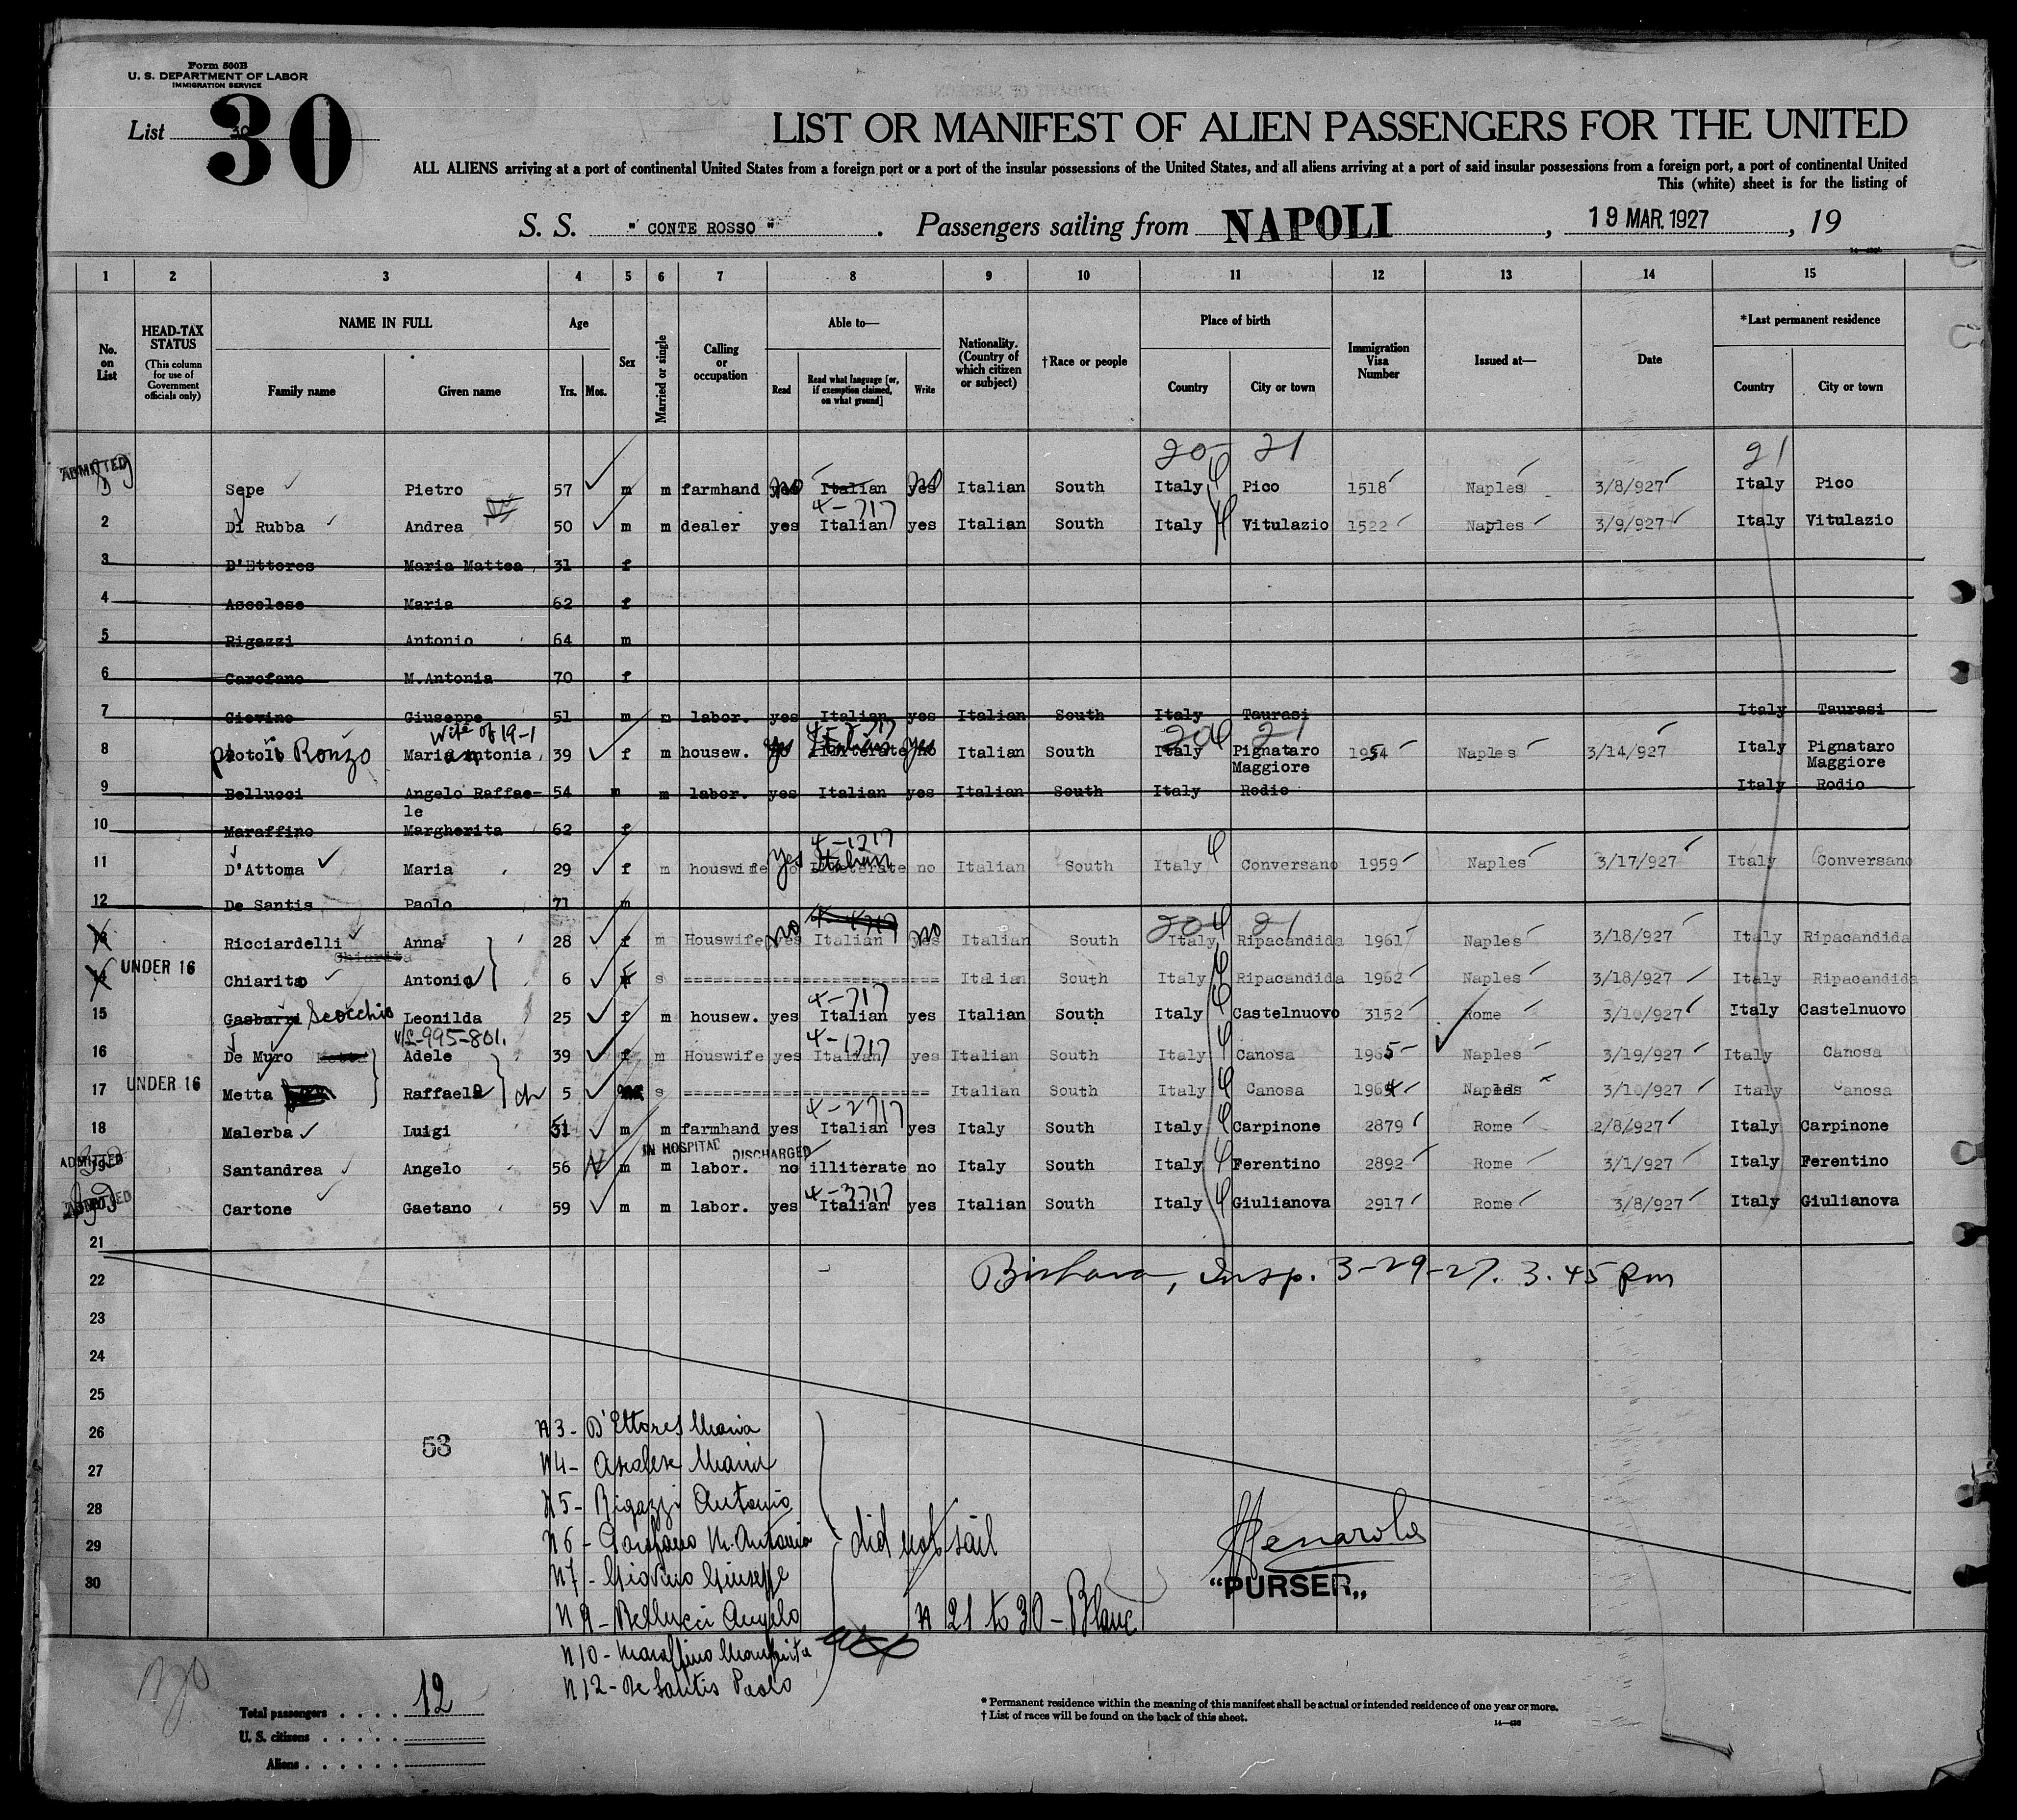 Form 500B
U. S. DEPARTMENT OF LABOR
IMMIGRATION SERVICE
List 30
30
LIST OR MANIFEST OF ALIEN PASSENGERS FOR THE UNITED
ALL ALIENS arriving at a port of continental United States from a foreign port or a port of the insular possessions of the United States, and all aliens arriving at a port of said insular possessions from a foreign port, a port of continental United
This (white) sheet is for the listing of
S. S. " CONTE ROSSO " . Passengers sailing from NAPOLI , 19 MAR. 1927 , 19
14—430
1 2 3 4 5 6 7 8 9 10 11 12 13 14 15
No. on List
HEAD-TAX STATUS
(This column for use of Government officials only)
NAME IN FULL
Family name Given name
Age
Yrs. Mos.
Sex
Married or single
Calling or occupation
Able to—
Read Read what language [or, if exemption claimed, on what ground] Write
Nationality. (Country of which citizen or subject)
†Race or people
Place of birth
Country City or town
Immigration Visa Number
Issued at—
Date
*Last permanent residence
Country City or town
20 21 21
ADMITTED
Sepe Pietro 57 m m farmhand yes no Italian yes no Italian South Italy Pico 1518 Naples 3/8/927 Italy Pico
4-717
2 Di Rubba Andrea 50 m m dealer yes Italian yes Italian South Italy Vitulazio 1522 Naples 3/9/927 Italy Vitulazio
3 D'Ettores Maria Mattea 31 f
4 Ascolese Maria 62 f
5 Rigazzi Antonio 64 m
6 Carofano M.Antonia 70 f
7 Giovino Giuseppe 51 m m labor. yes Italian yes Italian South Italy Taurasi Italy Taurasi
wife of 19-1
20 21
8 Ronzo Maria Antonia 39 f m housew. yes Italian yes Italian South Italy Pignataro Maggiore 1954 Naples 3/14/927 Italy Pignataro Maggiore
9 Bellucci Angelo Raffae-le 54 m m labor. yes Italian yes Italian South Italy Rodio Italy Rodio
10 Maraffino Margherita 62 f
4-1717
11 D'Attoma Maria 29 f m houswife yes Italian no Italian South Italy Conversano 1959 Naples 3/17/927 Italy Conversano
12 De Santis Paolo 71 m
20 21
Ricciardelli Anna 28 f m Houswife yes no Italian yes no Italian South Italy Ripacandida 1961 Naples 3/18/927 Italy Ripacandida
Chiarita
UNDER 16 Chiarito Antonia 6 f s ======================== Italian South Italy Ripacandida 1962 Naples 3/18/927 Italy Ripacandida
4-717
15 Gasbarri Scocchio Leonilda 25 f m housew. yes Italian yes Italian South Italy Castelnuovo 3152 Rome 3/10/927 Italy Castelnuovo
v/L-995-801. 4-1717
16 De Muro Metta Adele 39 f m Houswife yes Italian yes Italian South Italy Canosa 1965 Naples 3/19/927 Italy Canosa
17 UNDER 16 Metta Raffaela 5 s ======================== Italian South Italy Canosa 1964 Naples 3/10/927 Italy Canosa
4-2717
18 Malerba Luigi 51 m m farmhand yes Italian yes Italy South Italy Carpinone 2879 Rome 2/8/927 Italy Carpinone
IN HOSPITAL DISCHARGED
ADMITTED
Santandrea Angelo 56 m m labor. no illiterate no Italy South Italy Ferentino 2892 Rome 3/1/927 Italy Ferentino
4-3717
ADMITTED
Cartone Gaetano 59 m m labor. yes Italian yes Italian South Italy Giulianova 2917 Rome 3/8/927 Italy Giulianova
21
22 Insp. 3-29-27. 3.45 pm
23
24
25
26 N 3 - D'Ettores Maria
53
27 N 4 - Ascolese Maria
28 N 5 - Rigazzi Antonio
29 N 6 - Carofano M. Antonia did not sail
30 N 7 - Giovino Giuseppe
"PURSER„
N 9 - Bellucci Angelo N 21 to 30 - Blanc
N 10 - Maraffino Margherita
N 12 - De Santis Paolo
Total passengers . . . . 12
U. S. citizens . . . . .
Aliens . . . . . .
* Permanent residence within the meaning of this manifest shall be actual or intended residence of one year or more.
† List of races will be found on the back of this sheet.
14—430